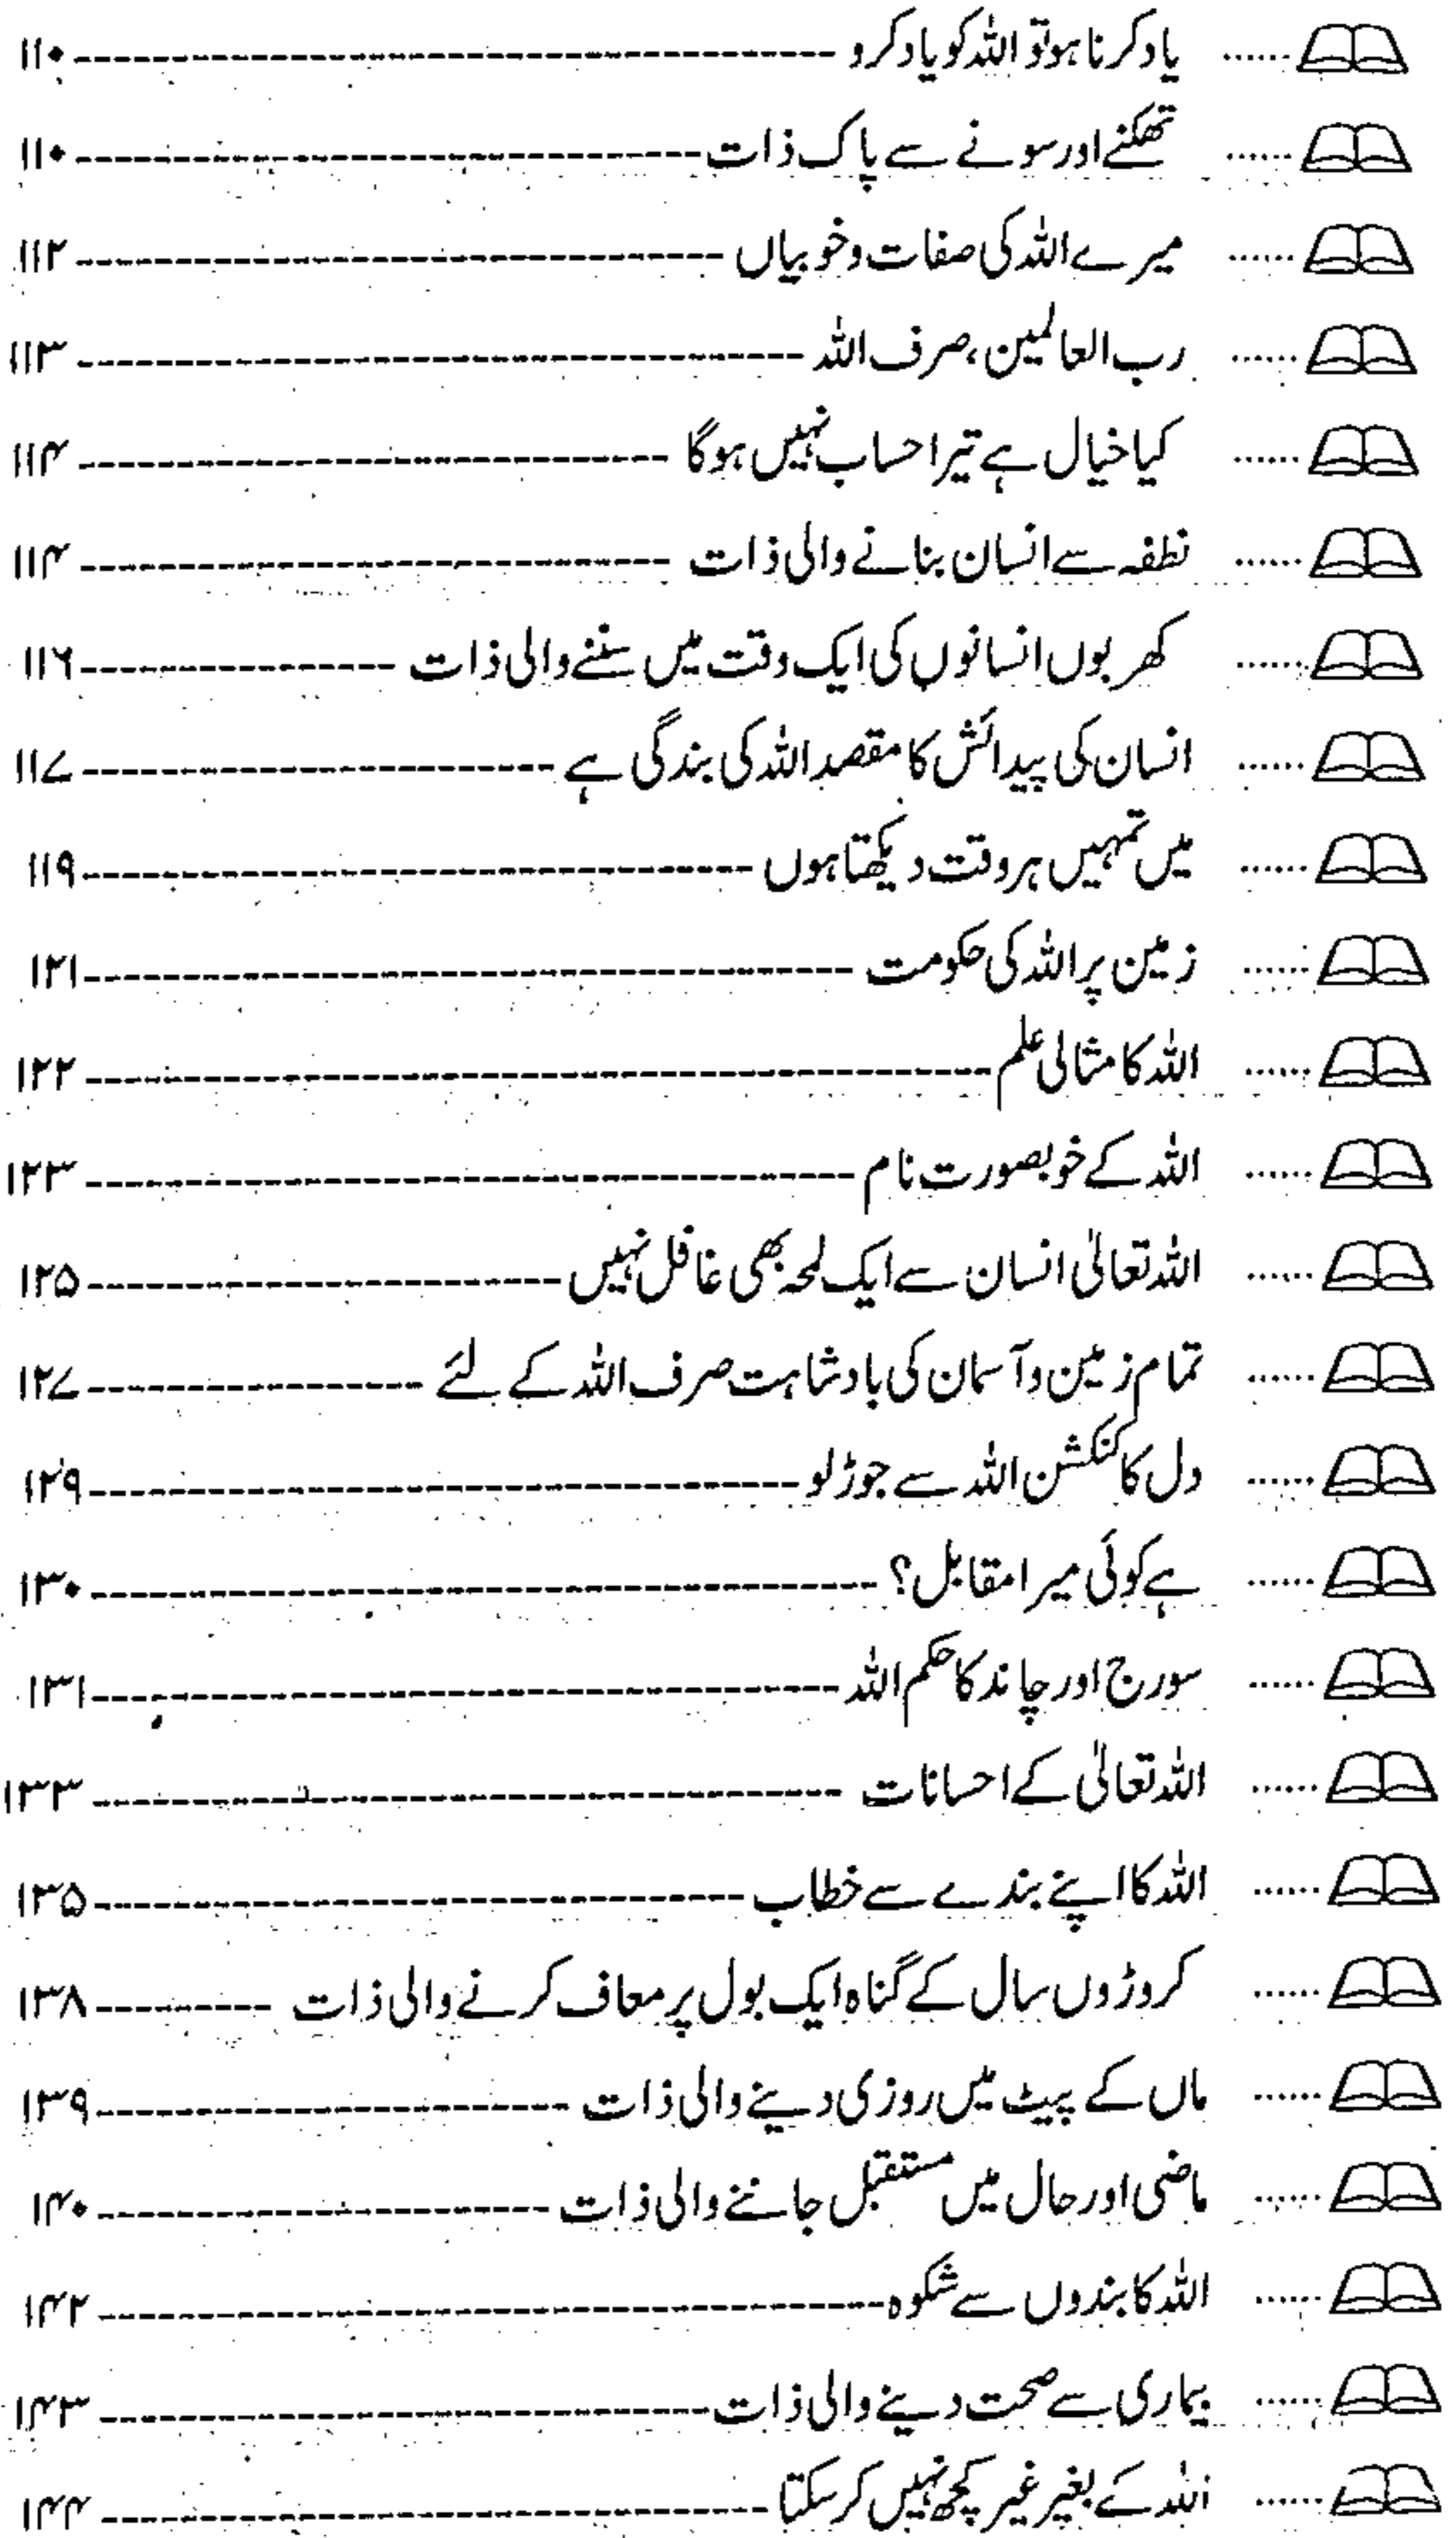 یاد کرنا ہو تو اللہ کو یاد کرو ۱۱۰
تھکنے اور سونے سے پاک ذات ۱۱۰
میرے اللہ کی صفات و خوبیاں ۱۱۲
رب العالمین، صرف اللہ ۱۱۳
کیا خیال ہے تیرا حساب نہیں ہوگا ۱۱۴
نطفہ سے انسان بنانے والی ذات ۱۱۴
کھربوں انسانوں کی ایک وقت میں سننے والی ذات ۱۱۶
انسان کی پیدائش کا مقصد اللہ کی بندگی ہے ۱۱۷
میں تمہیں ہر وقت دیکھتا ہوں ۱۱۹
زمین پر اللہ کی حکومت ۱۲۱
اللہ کا مثالی علم ۱۲۲
اللہ کے خوبصورت نام ۱۲۳
اللہ تعالیٰ انسان سے ایک لمحہ بھی غافل نہیں ۱۲۵
تمام زمین و آسمان کی بادشاہت صرف اللہ کے لئے ۱۲۷
دل کا کنکشن اللہ سے جوڑ لو ۱۲۹
ہے کوئی میرا مقابل؟ ۱۳۰
سورج اور چاند کا حکم اللہ ۱۳۱
اللہ تعالیٰ کے احسانات ۱۳۳
اللہ کا اپنے بندے سے خطاب ۱۳۵
کروڑوں سال کے گناہ ایک بول پر معاف کرنے والی ذات ۱۳۸
ماں کے پیٹ میں روزی دینے والی ذات ۱۳۹
ماضی اور حال میں مستقبل جاننے والی ذات ۱۴۰
اللہ کا بندوں سے شکوہ ۱۴۲
بیماری سے صحت دینے والی ذات ۱۴۳
اللہ کے بغیر غیر کچھ نہیں کر سکتا ۱۴۴